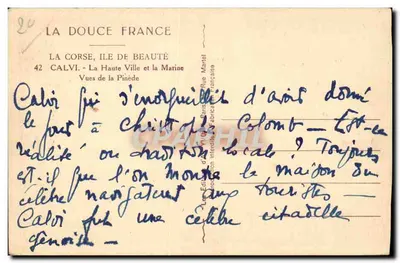 LA DOUCE FRANCE
LA CORSE, ILE DE BEAUTÉ
42 CALVI. - La Haute Ville et la Marine
Vues de la Pinède
Calvi qui s'enorgueillit d'avoir donné
le jour à Christophe Colomb — Est-ce
réalité ou tradition locale ? Toujours
est-il que l'on montre la maison du
célèbre navigateur aux touristes —
Calvi fut une célèbre citadelle
génoise —